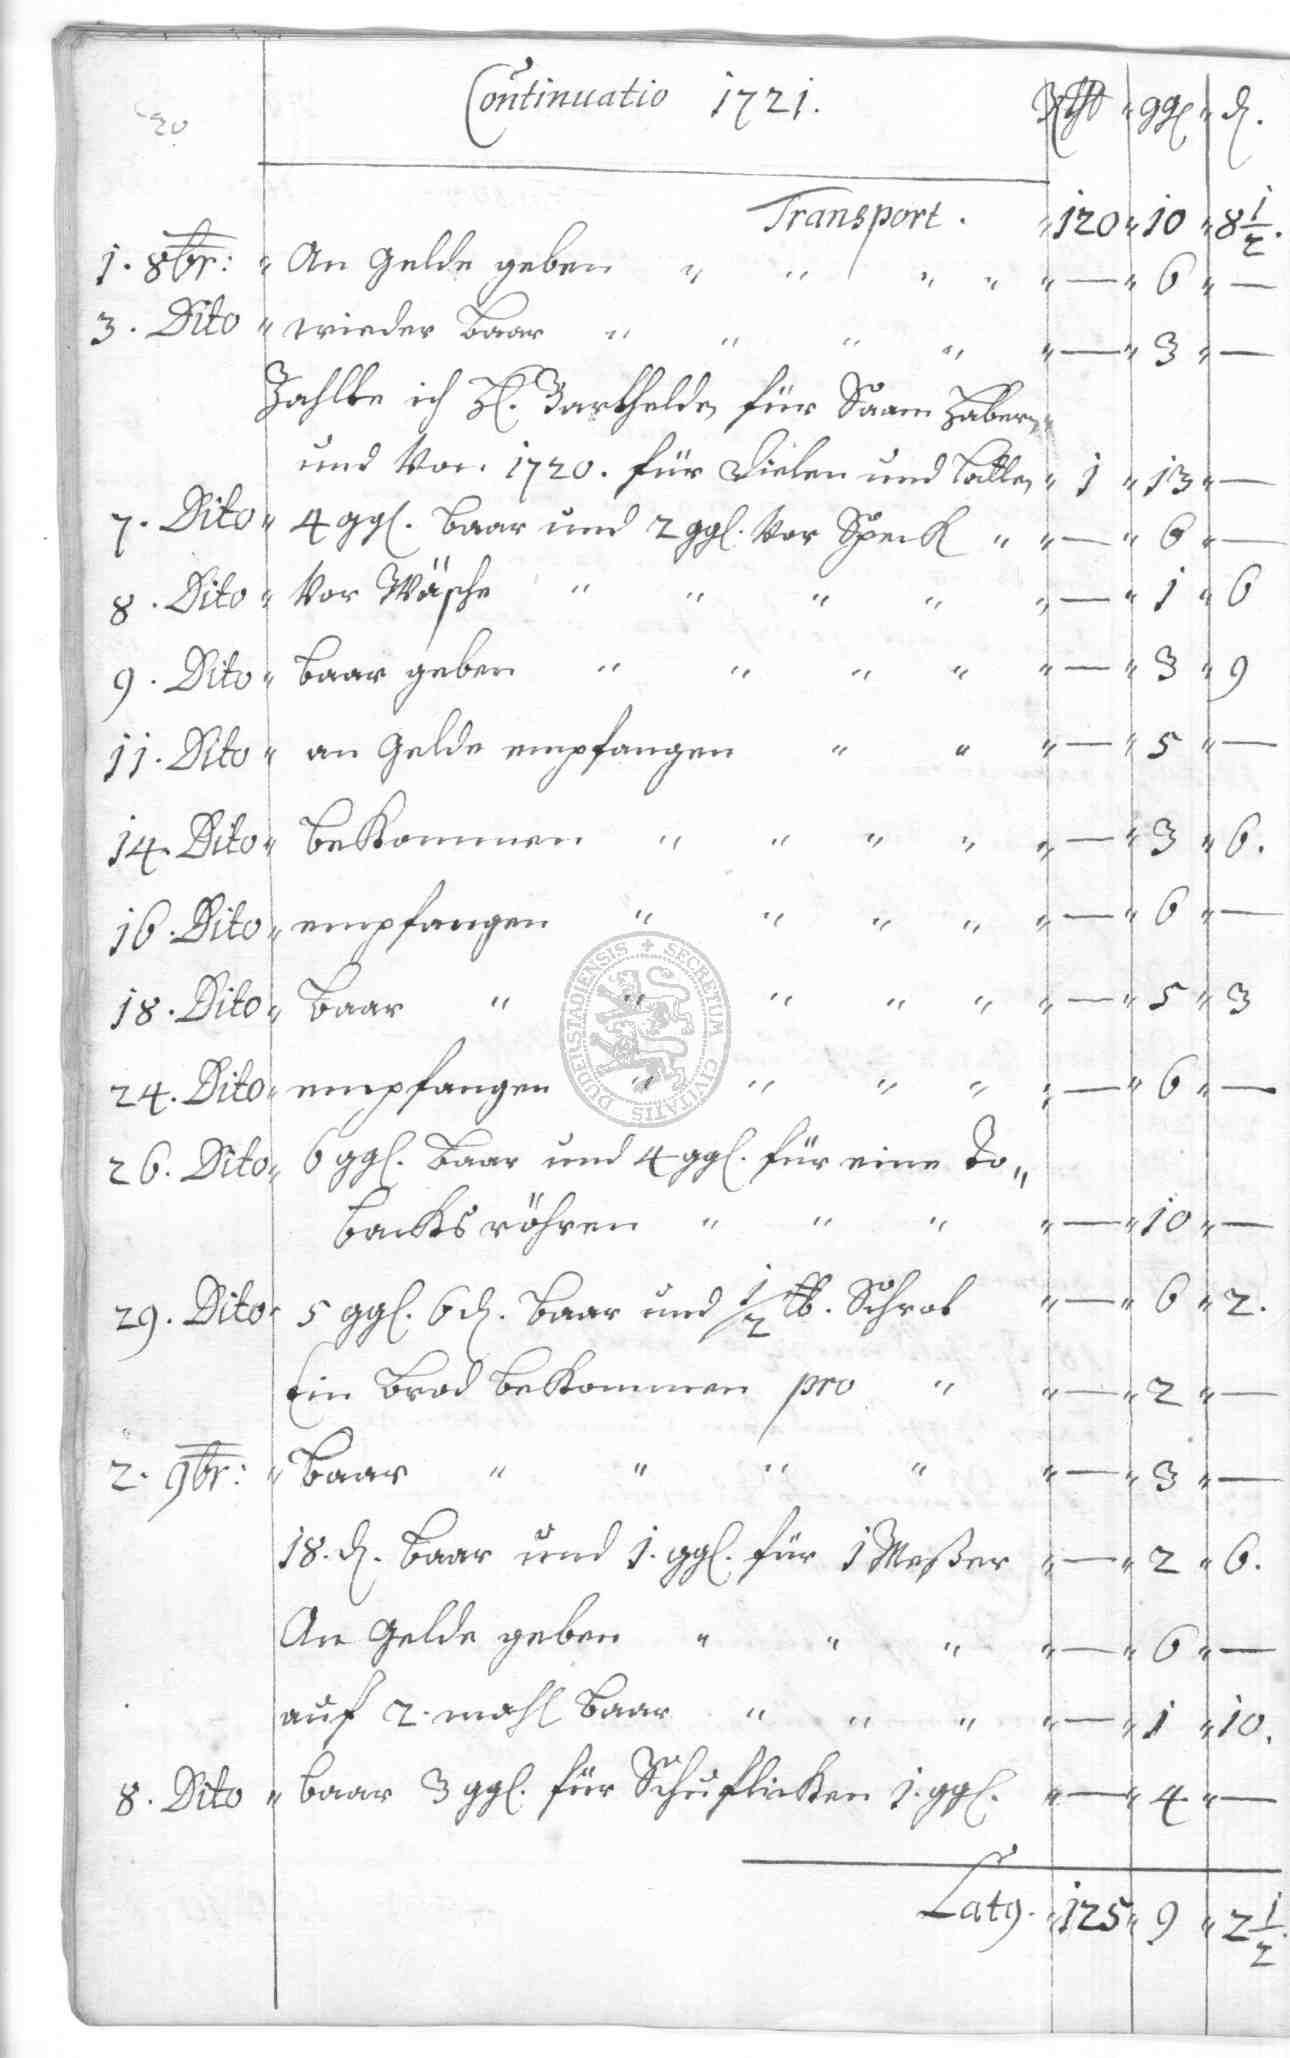 Continuatio 1721. Rthl " ggl " d.
Transport. " 120 " 10 " 8 1/2.
1. 8br: " An Gelde geben " " " " " — " 6 " —
3. Dito " wieder baar " " " " " — " 3 " —
Zahlte ich H. Barthelden für Saam Haber,
und Von. 1720. für Dielen und Latten " 1 " 13 " —
7. Dito " 4 ggl. baar und 2 ggl. Vor Speck " " — " 6 " —
8. Dito " Vor Wäsche " " " " " — " 1 " 6
9. Dito " baar geben " " " " " — " 3 " 9
11. Dito " an Gelde empfangen " " " — " 5 " —
14. Dito " bekommen " " " " " — " 3 " 6.
16. Dito " empfangen " " " " " — " 6 " —
18. Dito " baar " " " " " " — " 5 " 3
24. Dito " empfangen " " " " " — " 6 " —
26. Dito " 6 ggl. baar und 4 ggl. für eine To"
backs röhren " " " " — " 10 " —
29. Dito " 5 ggl. 6 d. baar und 1/2 lb. Schrot " — " 6 " 2.
Ein brod bekommen pro " " — " 2 " —
2. 9br: " baar " " " " " — " 3 " —
18. d. baar und 1. ggl. für 1 Meßer " — " 2 " 6.
An Gelde geben " " " " — " 6 " —
auf 2. mahl baar " " " " — " 1 " 10.
8. Dito " baar 3 ggl. für Schuflicken 1. ggl. " — " 4 " —
Lat9. " 125 " 9 " 2 1/2.
SECRETUM CIVITATIS DUDERSTADIENSIS